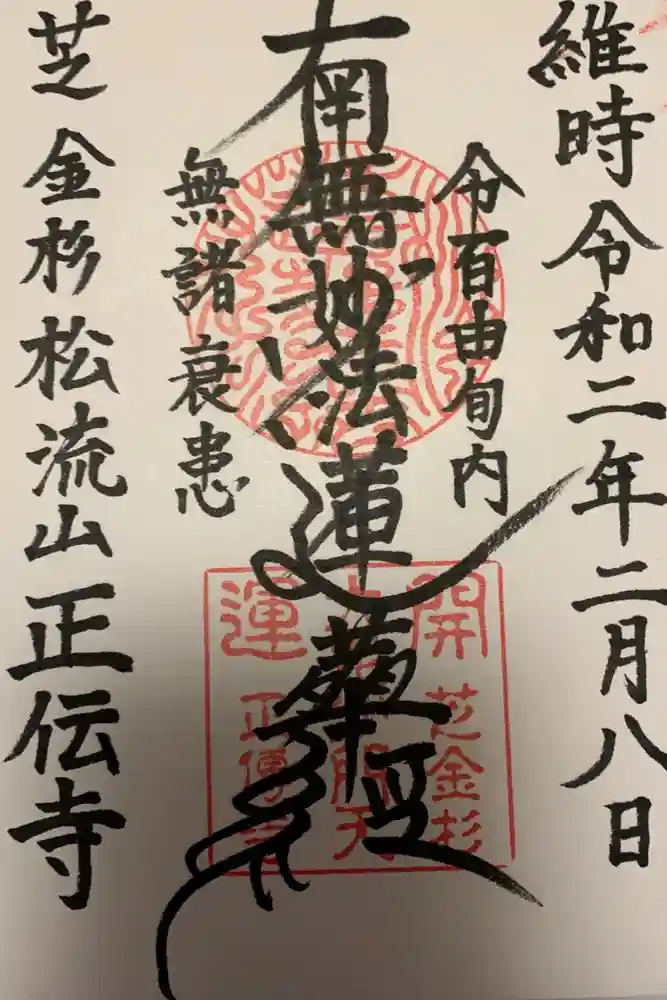 維時令和二年二月八日
令百由旬内
南無妙法蓮華経
無諸衰患
芝金杉松流山正伝寺
開運
芝金杉